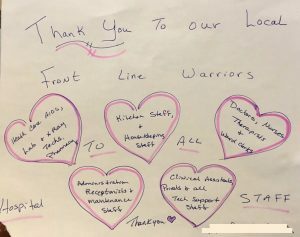 Thank You To our Local
Front Line Warriors
Health Care Aids,
Lab & X Ray
Techs,
Pharmacy
Kitchen Staff,
Housekeeping
Staff
Doctors, Nurses,
Therapists
&
Ward Clerks
To
All
Administration
Receptionists &
Maintenance
Staff
Clinical Assistants
& all
Tech Support
Staff
Hospital
Thank you
STAFF